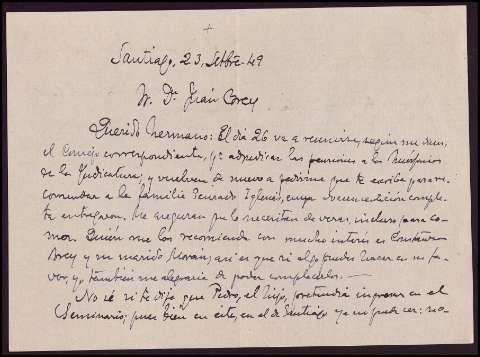 +
Santiago, 23, Setbre-49
Sr. Dn. Juan Corey
Querido hermano: El día 26 va a reunirse, según me dicen,
el Consejo correspondiente, que adjudicar las pensiones a los Huérfanos
de la Judicatura, y vuelven de nuevo a pedirme que te escriba para re-
comendar a la familia Iglesias, cuya documentación comple-
ta entregaron. Me aseguran que lo necesitan de veras, incluso para co-
mer. Quién me los recomienda con mucho interés es Constan
y su marido Morán, así es que si algo puedes hacer en su fa-
vor, yo también me alegraría de poder complacerlos.
No sé si te dije que Pedro, el hijo, pretendía ingresar en el
Seminario; pues bien en éste, en el de Santiago ya no puede ser: no-